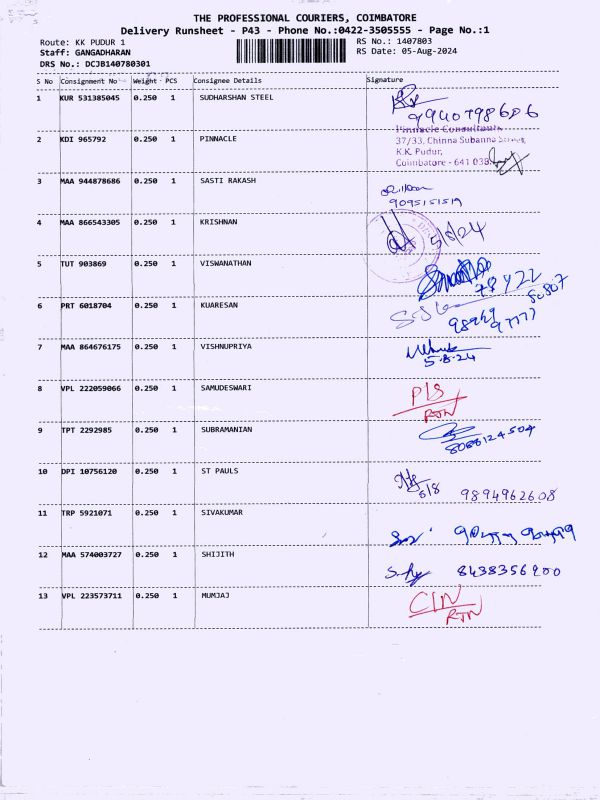 THE PROFESSIONAL COURIERS, COIMBATORE
Delivery Runsheet - P43 - Phone No.:0422-3505555 - Page No.:1
Route: KK PUDUR 1 RS No.: 1407803
Staff: GANGADHARAN RS Date: 05-Aug-2024
DRS No.: DCJB140780301
S No Consignment No Weight PCS Consignee Details Signature
1 KUR 531385045 0.250 1 SUDHARSHAN STEEL
9940798606
2 KDI 965792 0.250 1 PINNACLE
Pinnacle Consultants
37/33, Chinna Subanna Street,
K.K. Pudur,
Coimbatore - 641 038
3 MAA 944878686 0.250 1 SASTI RAKASH
9095151519
4 MAA 866543305 0.250 1 KRISHNAN
5/8/24
5 TUT 903869 0.250 1 VISWANATHAN
6 PRT 6018704 0.250 1 KUARESAN
7 MAA 864676175 0.250 1 VISHNUPRIYA
5-8-24
8 VPL 222059066 0.250 1 SAMUDESWARI
P/S
RTN
9 TPT 2292985 0.250 1 SUBRAMANIAN
8088124504
10 DPI 10756120 0.250 1 ST PAULS
5/8 9894962608
11 TRP 5921071 0.250 1 SIVAKUMAR
12 MAA 574003727 0.250 1 SHIJITH
8438356900
13 VPL 223573711 0.250 1 MUMJAJ
C/N
RTN